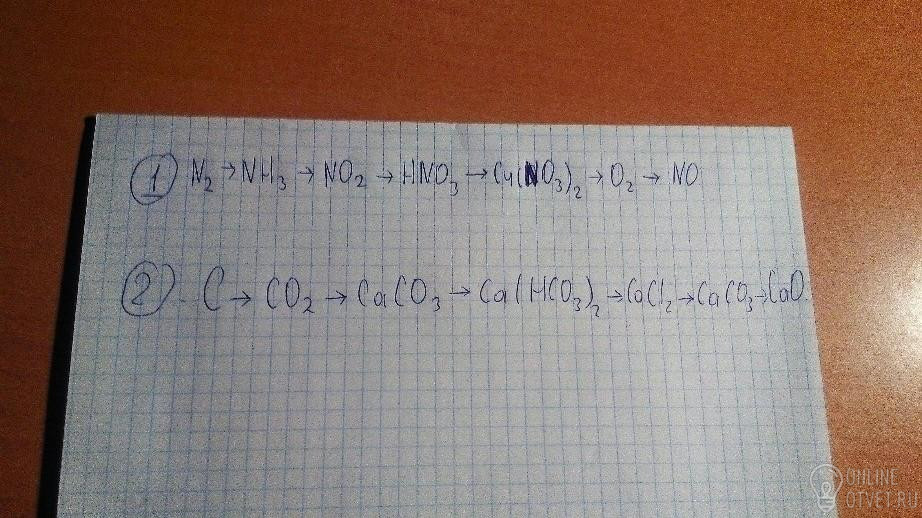 1 N₂ → NH₃ → NO₂ → HNO₃ → Cu(NO₃)₂ → O₂ → NO
2 C → CO₂ → CaCO₃ → Ca(HCO₃)₂ → CaCl₂ → CaCO₃ → CaO.
ONLINE
OTVET.RU